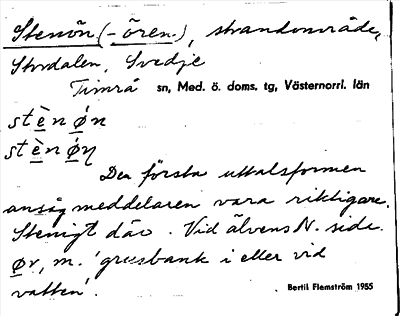 Stenön (-ören), strandområde,
Stordalen, Svedje
Timrå sn, Med. ö. doms. tg, Västernorrl. län
stènǿn
stènǿŋ
Den första uttalsformen
ansåg meddelaren vara riktigare.
Stenigt där. Vid älvens N. side.
Ør, m. 'grusbank i eller vid
vatten'.
Bertil Flemström 1955